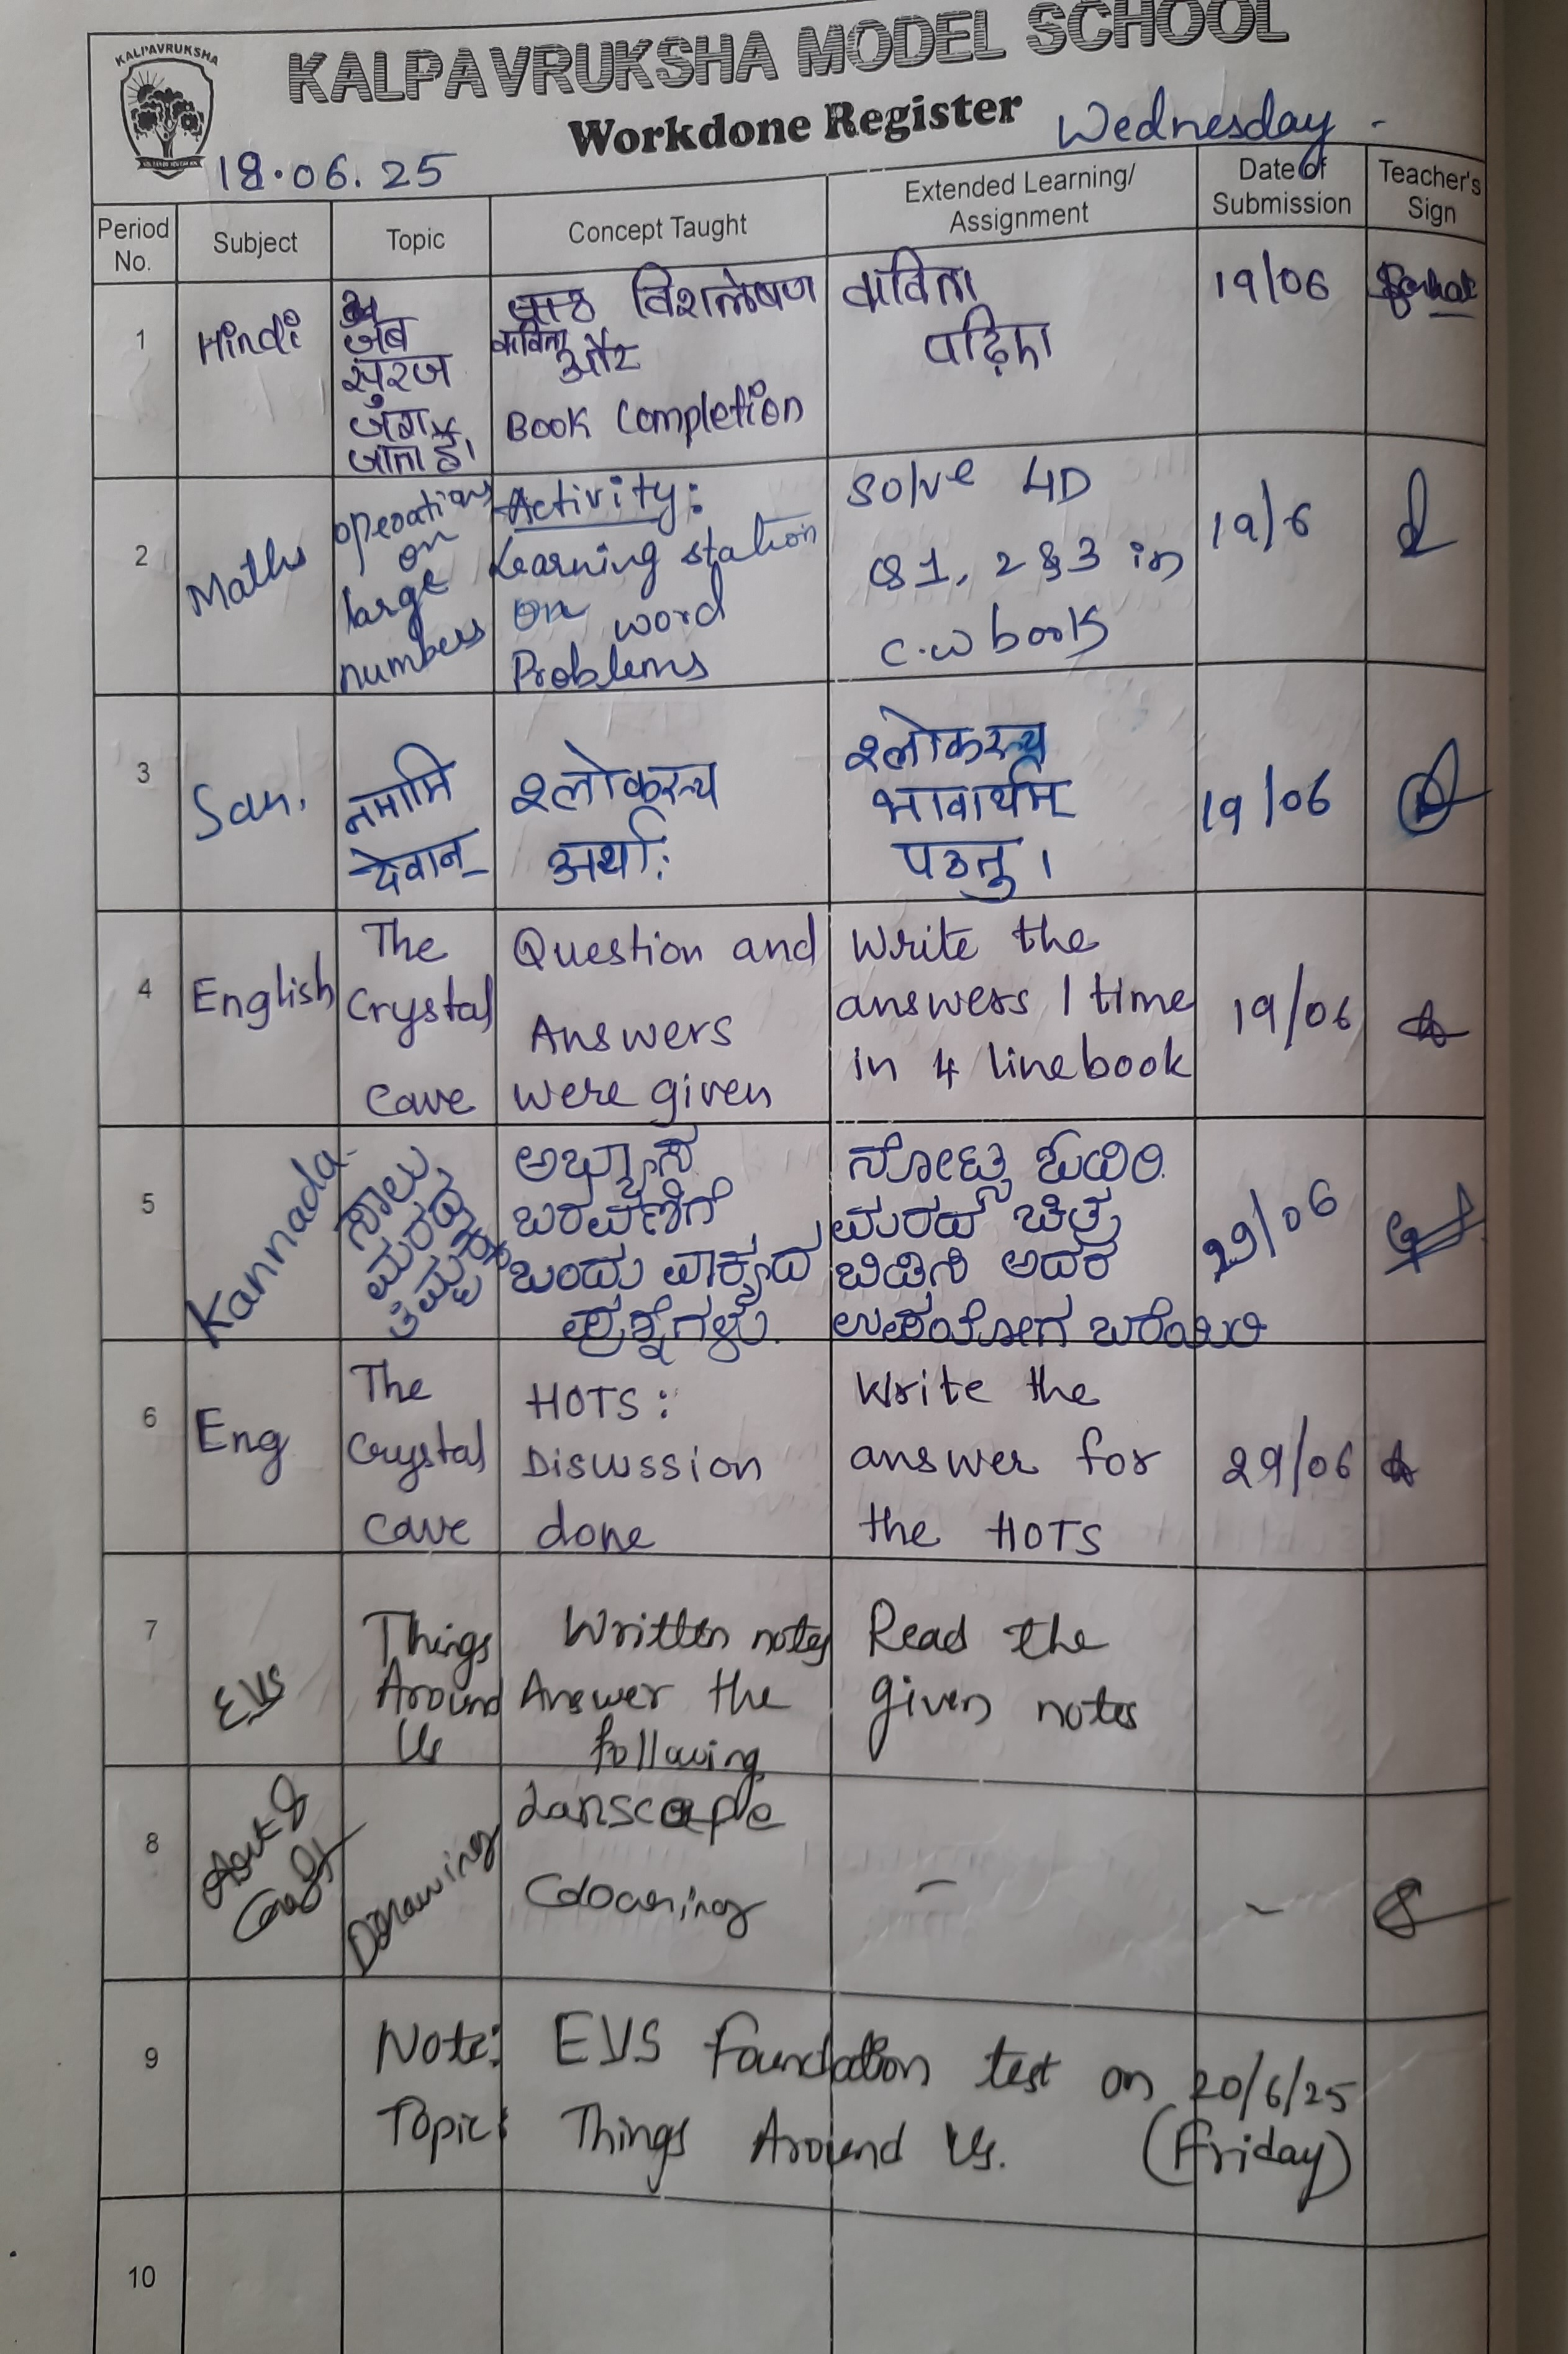 KALPAVRUKSHA
KALPAVRUKSHA MODEL SCHOOL
Workdone Register
Wednesday
18.06.25
Period No.
Subject
Topic
Concept Taught
Extended Learning/
Assignment
Date of
Submission
Teacher's
Sign
1
Hindi
जब
सुरज
जग
जाता है।
विशलेषण
कविता और
Book Completion
कविता
पढ़िए
19/06
2
Maths
operations
on
large
numbers
Activity:
Learning station
on word
Problems
Solve 4D
Q 1, 2 & 3 in
C.W book
19/6
3
San.
नमामि
देवान्
श्लोकस्य
अर्थाः
श्लोकस्य
भावार्थम्
पठतु।
19/06
4
English
The
Crystal
Cave
Question and
Answers
were given
Write the
answers 1 time
in 4 line book
19/06
5
Kannada
ಸಾಲು
ಮರದ
ತಿಮ್ಮಕ್ಕ
ಅಭ್ಯಾಸ
ಬರವಣಿಗೆ
ಒಂದು ವಾಕ್ಯದ
ಪ್ರಶ್ನೆಗಳು.
ನೋಟ್ಸ ಓದಿರಿ.
ಮರದ ಚಿತ್ರ
ಬಿಡಿಸಿ ಅದರ
ಉಪಯೋಗ ಬರೆಯಿರಿ
29/06
6
Eng
The
Crystal
Cave
HOTS:
Discussion
done
Write the
answer for
the HOTS
29/06
7
EVS
Things
Around
Us
Written notes
Answer the
following
Read the
given notes
8
Art &
Craft
Drawing
Lanscape
Colouring
–
–
9
Note: EVS Foundation test on 20/6/25
Topic: Things Around Us. (Friday)
10